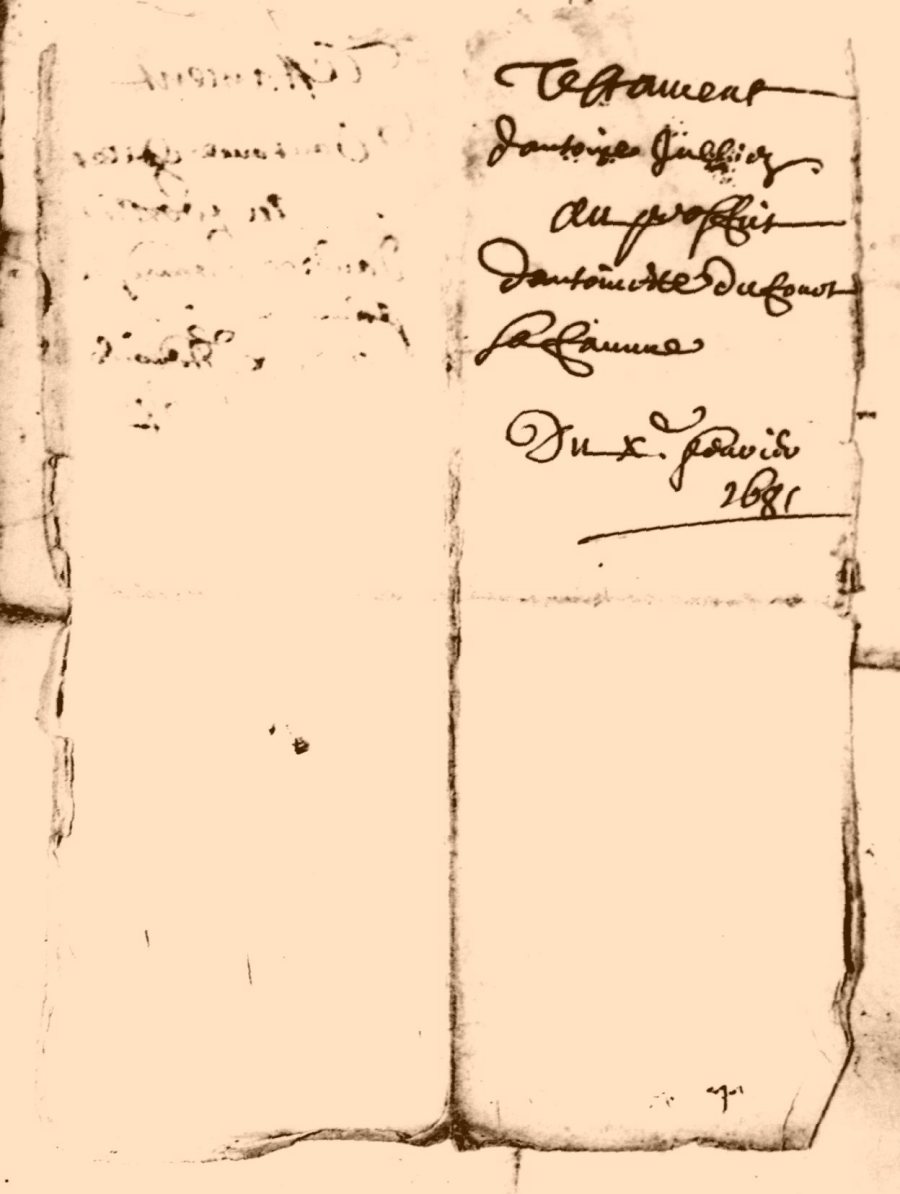 Testament
d'antoine Jullien
au proffit
d'antoinette du
sa famme
Du x.e febvrier
1681